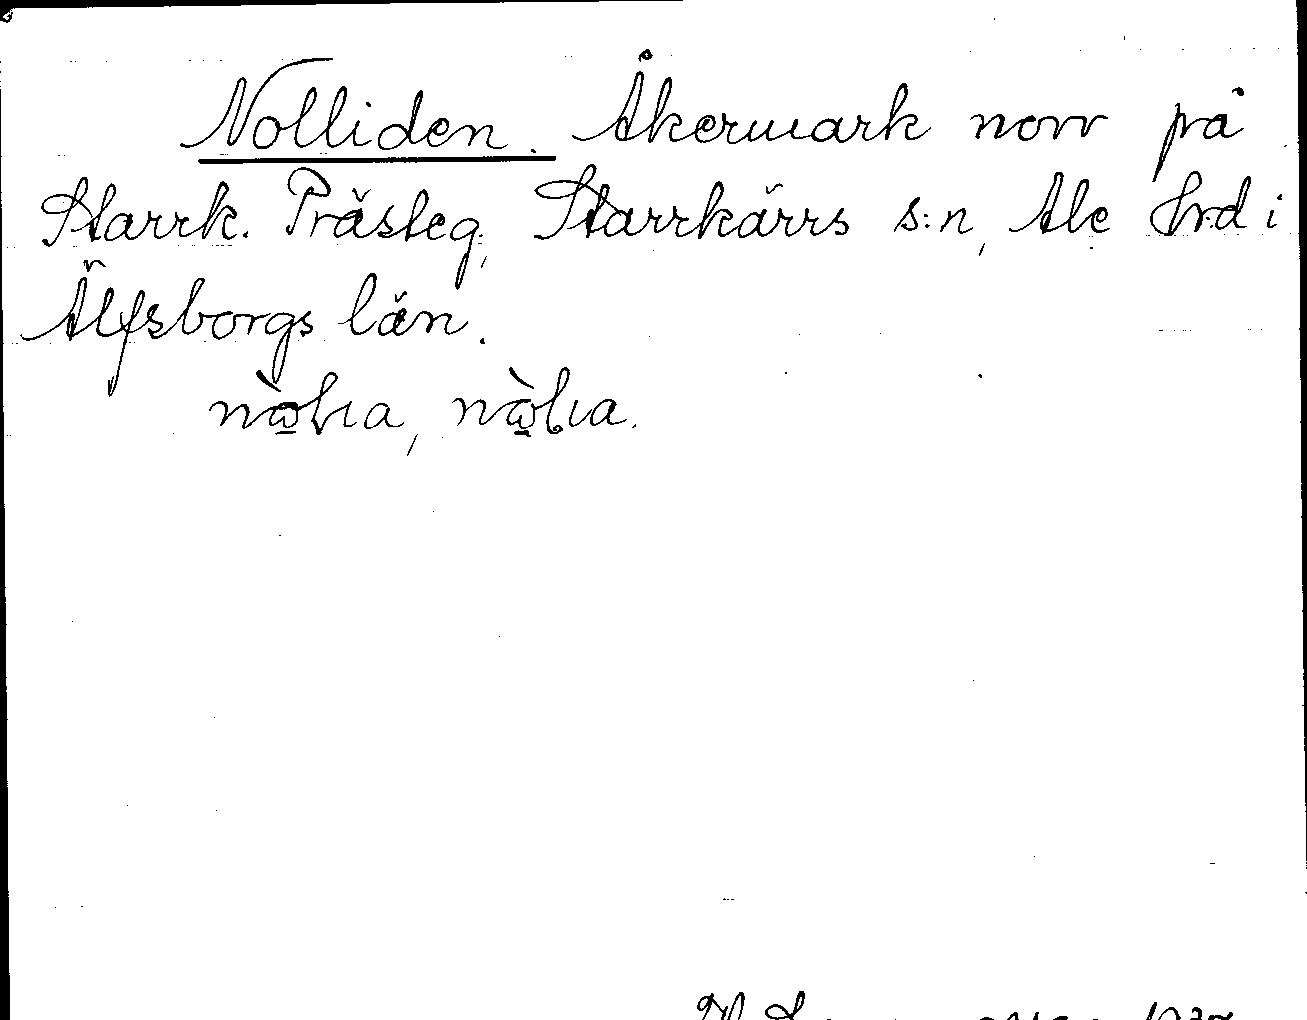 Nolliden. Åkermark norr på
Starrk. Prästeg., Starrkärrs s:n, Ale hrd i
Älfsborgs län.